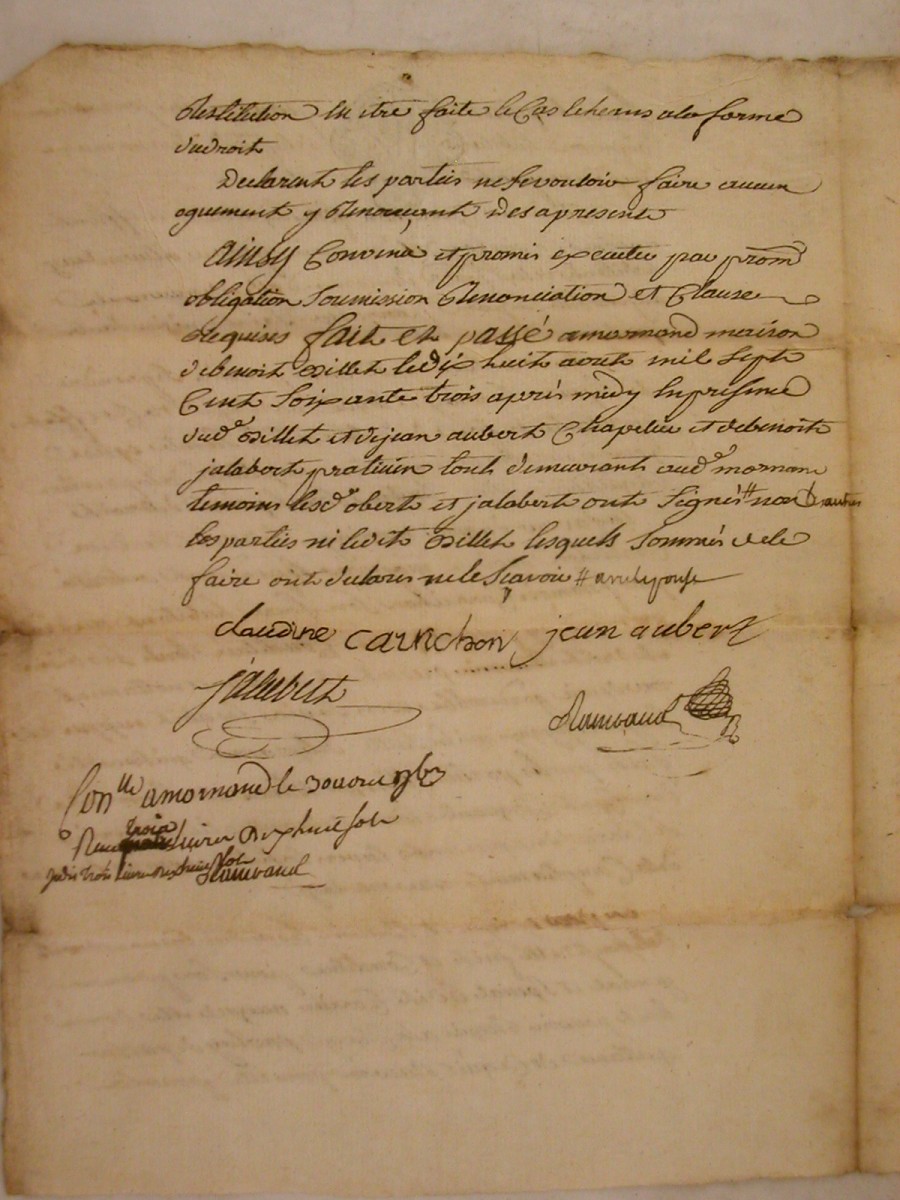 Restitution en etre faite le Cas echeans a la forme
du droit
Declarent les parties ne se vouloir faire aucun
ogument y Renonçant des a present
Ainsy Convenu et promis executer par prom
obligation Soumission Renonciation et Clause
Requises fait et passé a mornand maison
de benoit Oillet le dix huit aout mil Sept
Cent Soixante trois après midy En presence
dud Oillet et de jean aubert Chapelier et de benoit
jalabert praticien tous demeurants aud mornand
temoins lesd obert et jalabert ont Signés # non autres
les parties ni ledit Oillet lesquels Sommés de le
faire ont déclarés ne le Scavoir #
claudine carichon jean aubert
jalabert
Rainvaud
Con.lle a mornand le 30 aout 1763
Recu trois livres dix huit sols
jedis trois livres dix huit sols Rainvaud